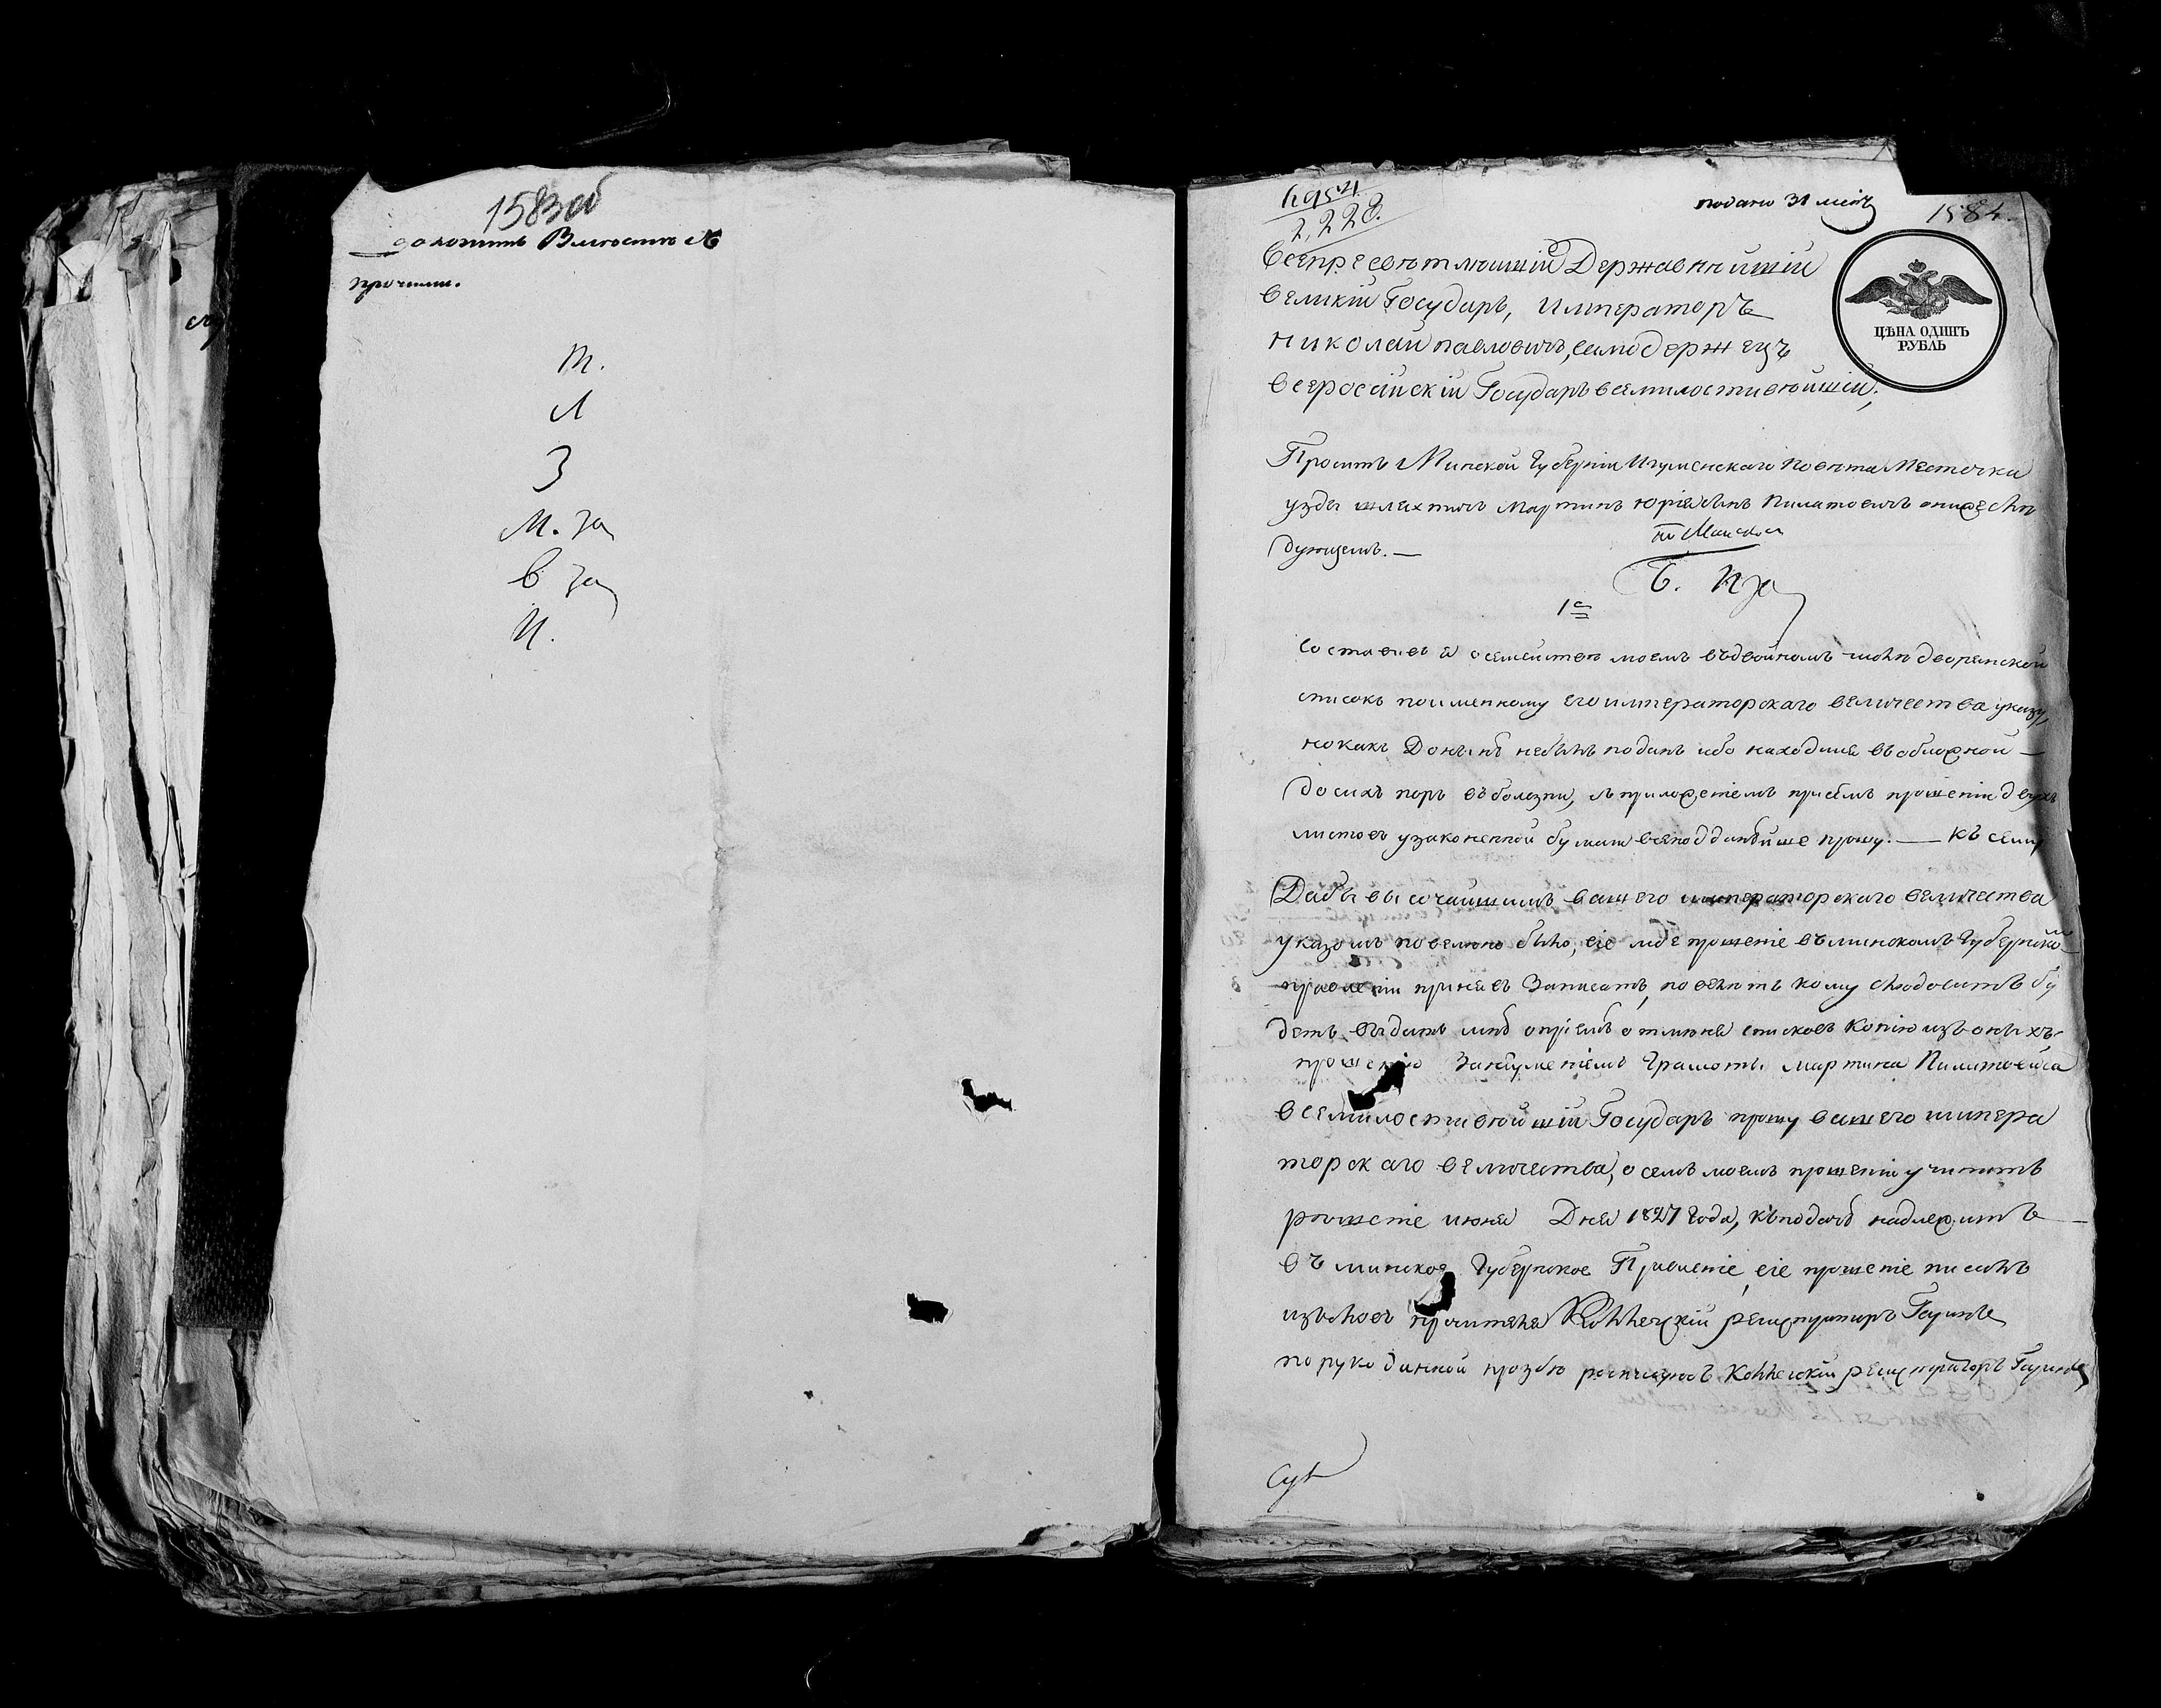 1583об
доложить Вместе съ
прочими.
Т.
Л
З
М. за
В за
И.
2,228.
подано 31 маія
1584.
ЦѢНА ОДИНЪ
РУБЛЬ
Всепресвѣтлѣйшій Державнѣйшій
великій Государь, Императоръ
николай павловичъ, самодержецъ
всероссійскій Государь всемилостивѣйшій;
Проситъ Минской Губерніи Игуменскаго Повѣта Местечка
узды шляхтичъ мартинъ юріевъ сынъ Пилатовичъ о нижеслѣ
дующемъ. —
1е
составивъ я о семействѣ моемъ въ двойномъ числѣ дворянской
списокъ по именному его императорскаго величества указу,
но какъ донынѣ небылъ поданъ ибо находился въ обложной —
до сихъ поръ въ болезни, съ приложеніемъ при семъ прошеніи двухъ
листовъ узаконенной бумаги всеподданѣйше прошу. — къ сему
Дабы высочайшимъ вашего императорскаго величества
указомъ повелено было, сіе мое прошеніе въ минскомъ Губернско
правленіи принявъ Записать, повелѣть кому слѣдоватъ бу
детъ выдать мнѣ о пріемѣ отменя списковъ копію изъ оныхъ
прошенію Занеуменіемъ Грамоты мартина Пилатовича
всемилостивѣйшій Государь прошу вашего импера
торскаго величества, о семъ моемъ прошеніи учинить
решеніе июня Дня 1827 года, къ подачѣ надлежитъ —
въ минское Губернское Правленіе, сіе прошеніе писалъ
изъ словъ просителя Коллежскій регистраторъ
по руко данной прозбѣ росписуюсь Коллежскій регистраторъ